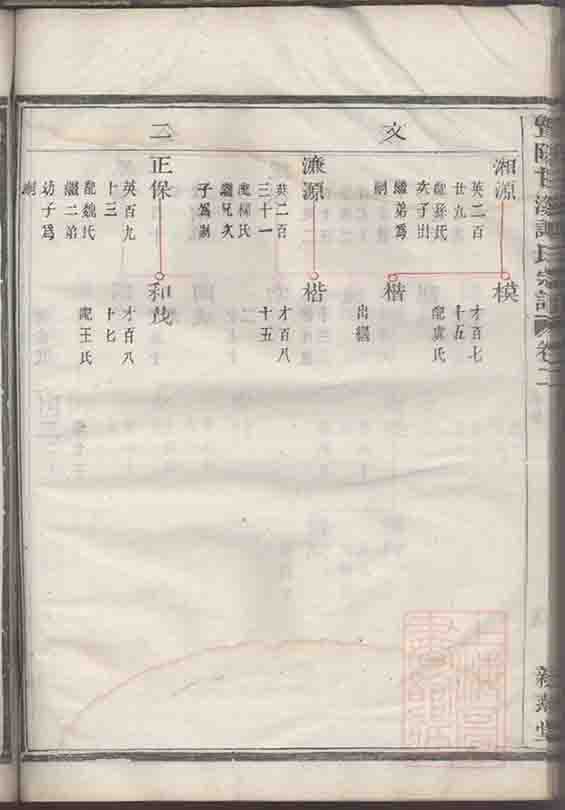 文
湘源
英二百
廿九
配孫氏
次子出
繼弟為
嗣
模
才百七
十五
配袁氏
楷
出繼
濂源
英二百
三十一
氏
繼兄次
子為嗣
楷
才百八
十五
二
正保
英百九
十三
配魏氏
繼二弟
幼子為
嗣
和茂
才百八
十七
配王氏
氏宗譜
卷二